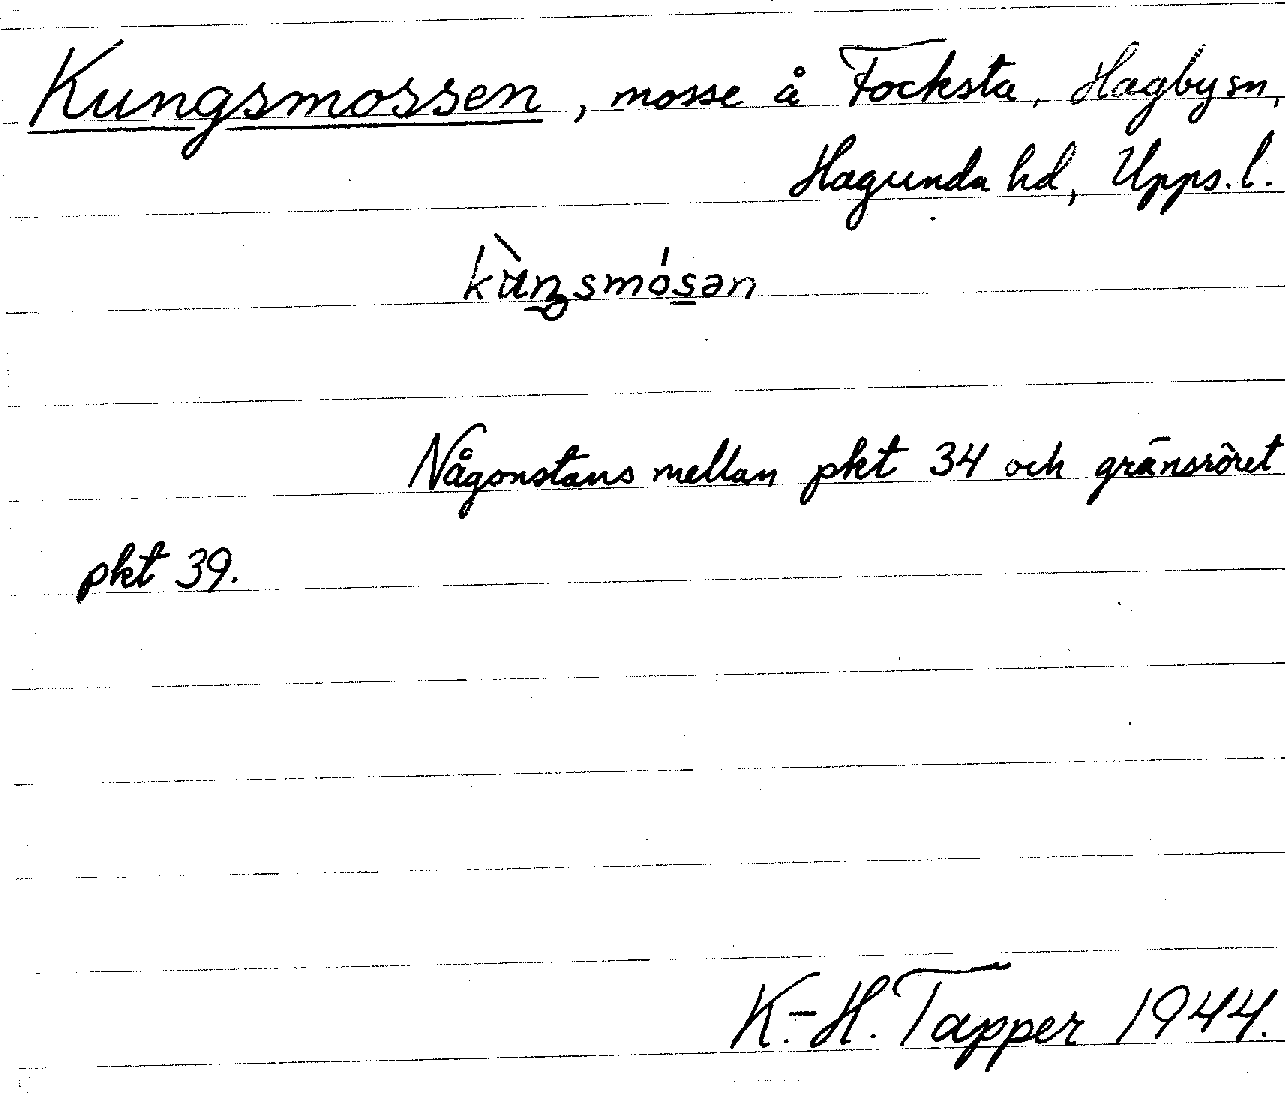 Kungsmossen, mosse å Focksta, Hagby sn,
Hagunda hd, Upps. l.
kùŋsmósən
Någonstans mellan pkt 34 och gränsröret
pkt 39.
K.-H. Tapper 1944.